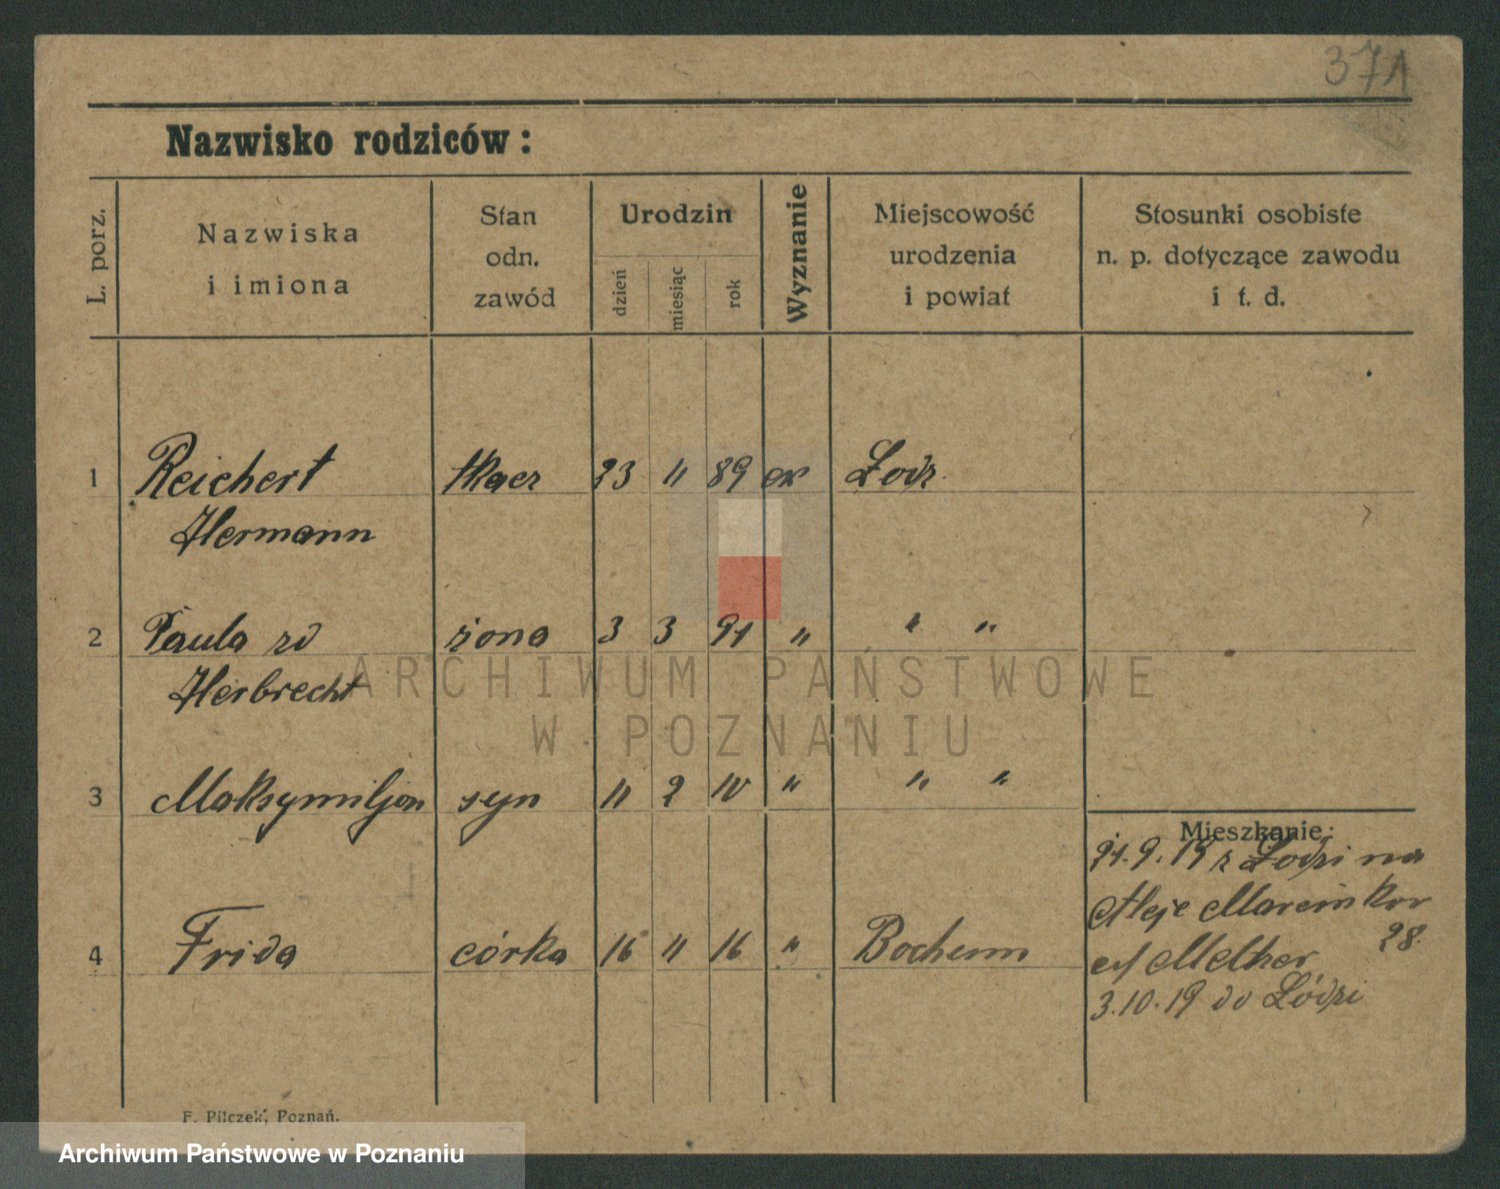 371
Nazwisko rodziców:
L. porz.
Nazwiska
i imiona
Stan
odn.
zawód
Urodzin
dzień
miesiąc
rok
Wyznanie
Miejscowość
urodzenia
i powiat
Stosunki osobiste
n. p. dotyczące zawodu
i t. d.
1 Reichert tkacz 23 11 89 ew Łodz
Hermann
2 Paula zd żona 3 3 91 " " "
Herbrecht
ARCHIWUM PAŃSTWOWE
W POZNANIU
3 Maksymiljan syn 11 2 10 " " "
Mieszkanie:
21.9.19 z Łodzi na
Aleje Marcinkow
28.
4 Frida córka 16 11 16 " Bochum
3.10.19 do Łódzi
F. Pilczek, Poznań.
Archiwum Państwowe w Poznaniu